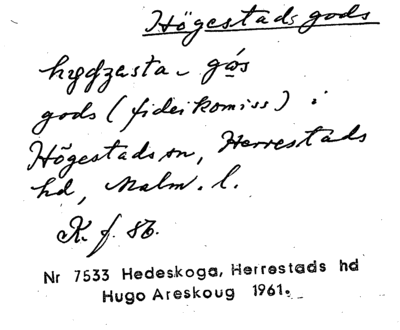 Högestads gods
gods (fideikomiss) i
Högestads sn, Herrestads
hd, Malm. l.
K. f. 86.
Nr 7533 Hedeskoga, Herrestads hd
Hugo Areskoug 1961.